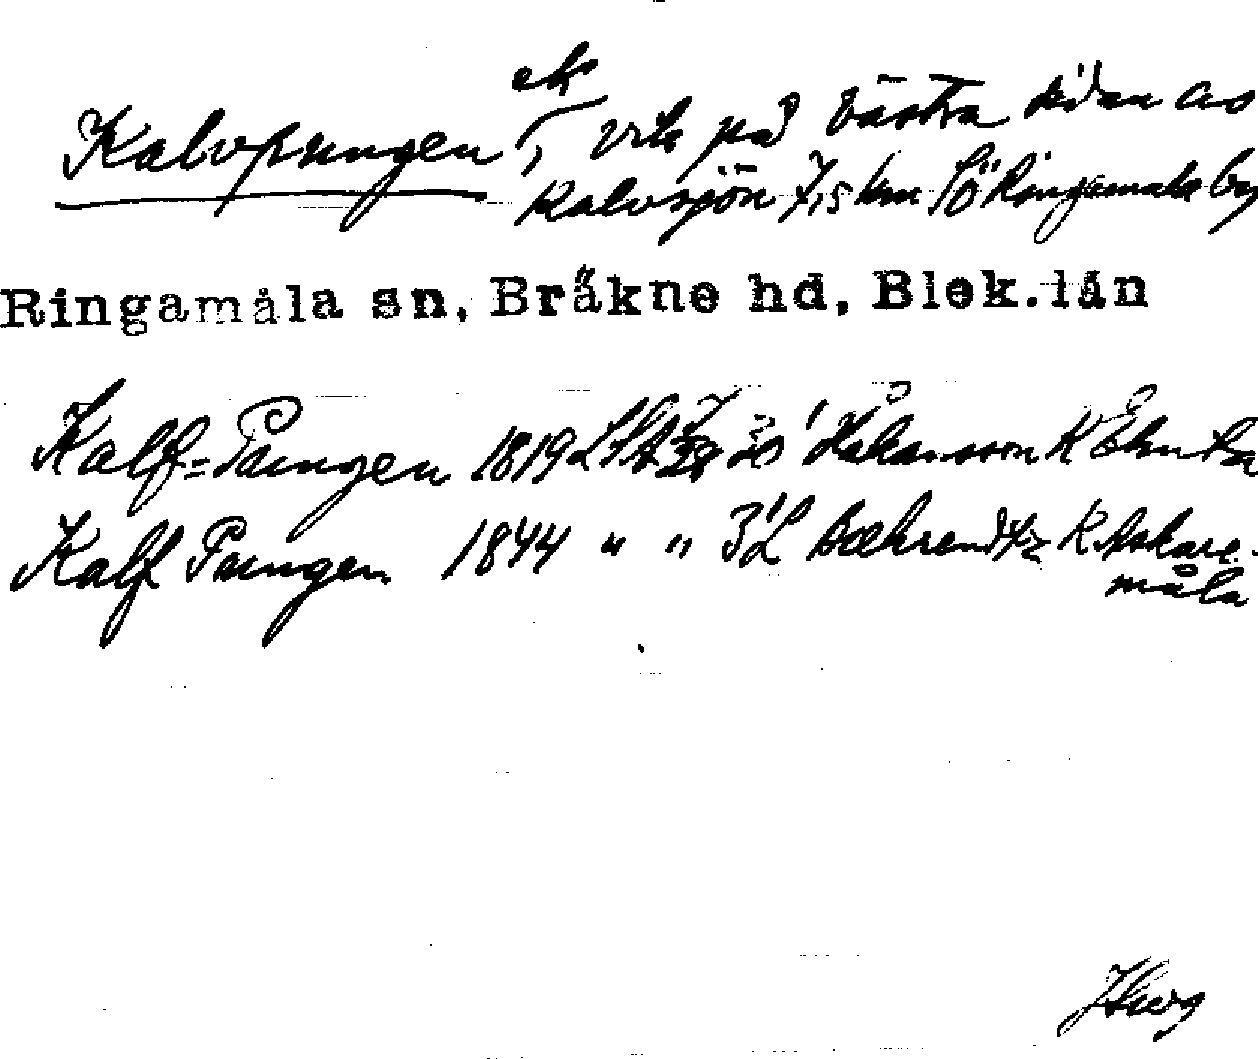 ek
Kalvpungen, vik på västra sidan av
Kalvsjön 7,5 km SÖ Ringamåla by
Ringamåla sn, Bräkne hd, Blek. län
Kalf-Pungen 1819 Håkansson K
Kalf Pungen 1844 " " Bæhrendtz K Askare-
måla